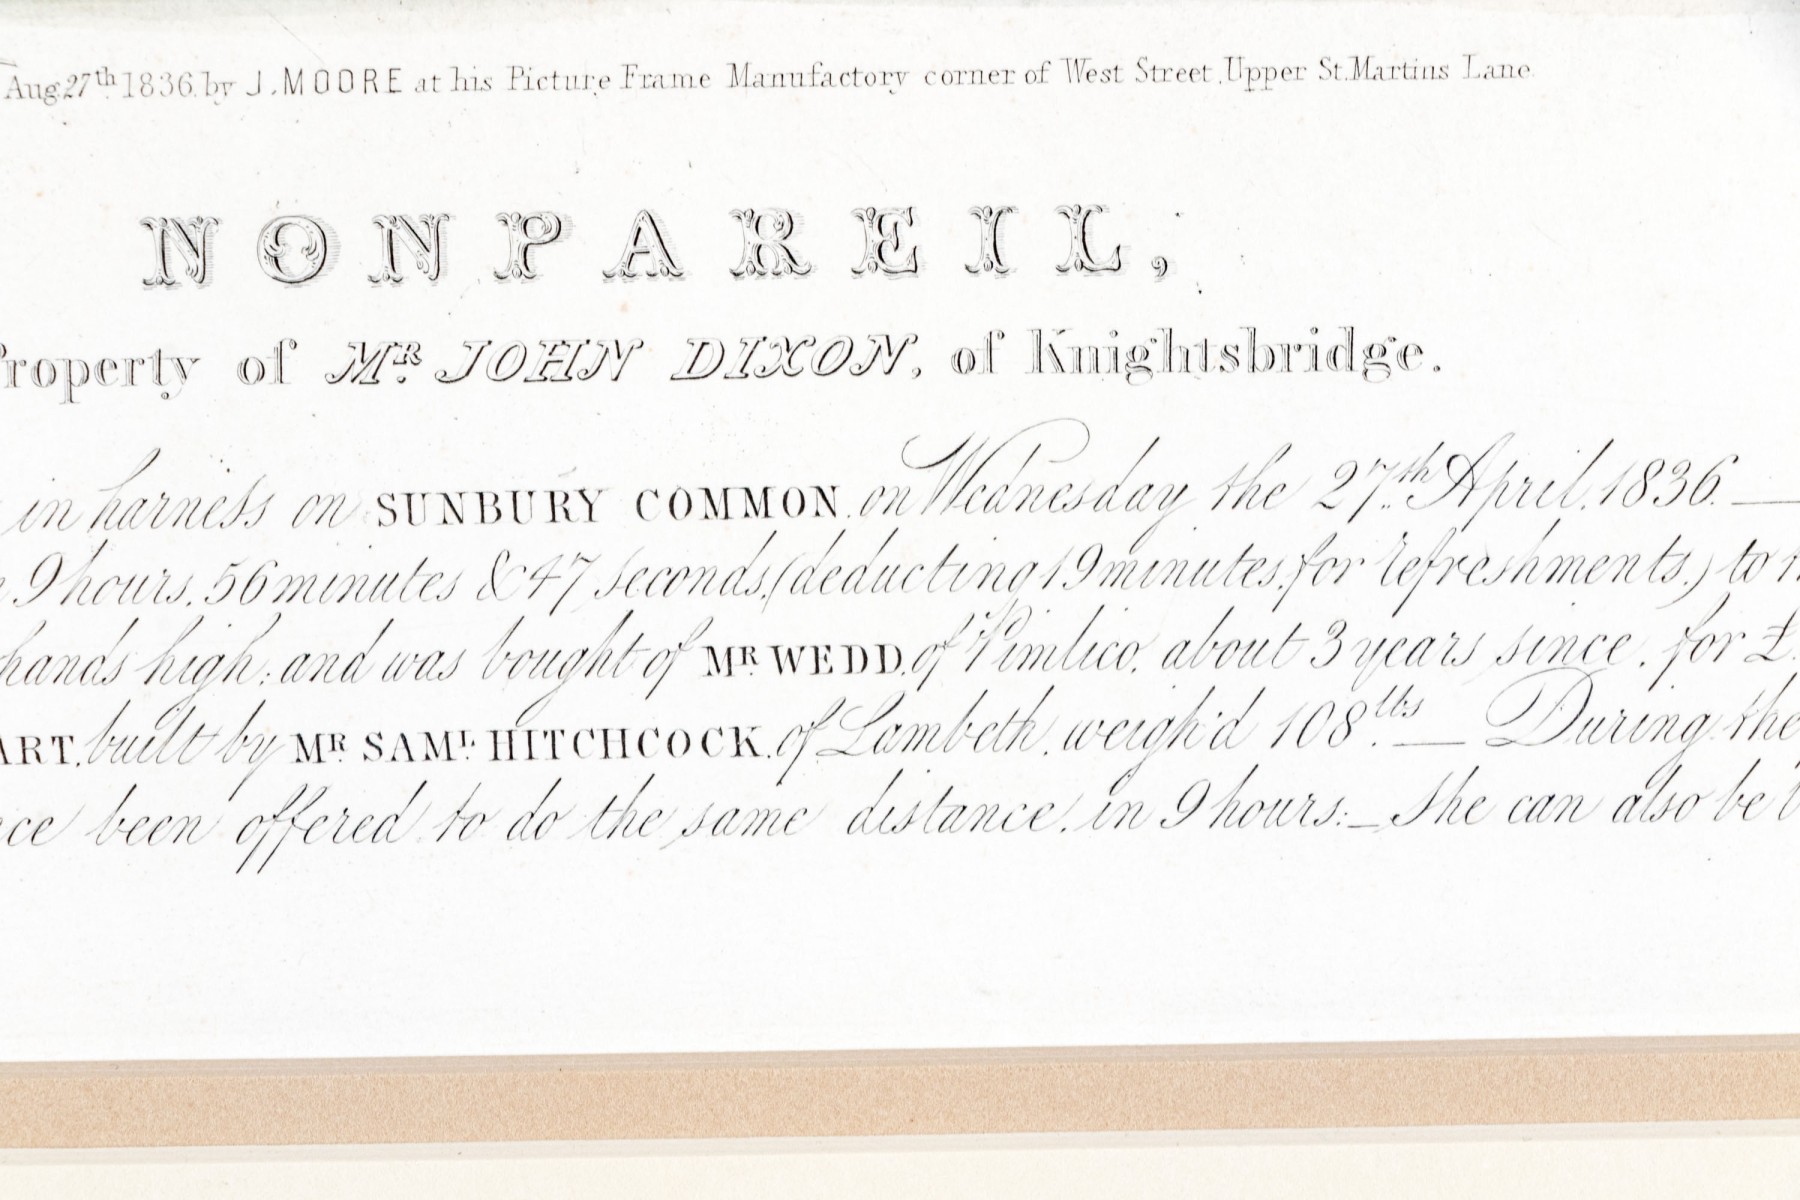 Aug. 27th 1836. by J. MOORE at his Picture Frame Manufactory corner of West Street, Upper St. Martins Lane.
NONPAREIL,
Property of MR. JOHN DIXON, of Knightsbridge.
in harness on SUNBURY COMMON, on Wednesday the 27th April, 1836. —
9 hours, 56 minutes & 47 seconds, (deducting 19 minutes, for refreshments,) to
hands high; and was bought of MR WEDD, of Pimlico, about 3 years since, for £
ART, built by MR SAML. HITCHCOCK, of Lambeth, weigh'd 108 lbs. — During the
been offered to do the same distance, in 9 hours: — She can also be